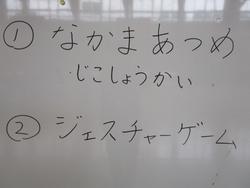 ① なかまあつめ
じこしょうかい
② ジェスチャーゲーム